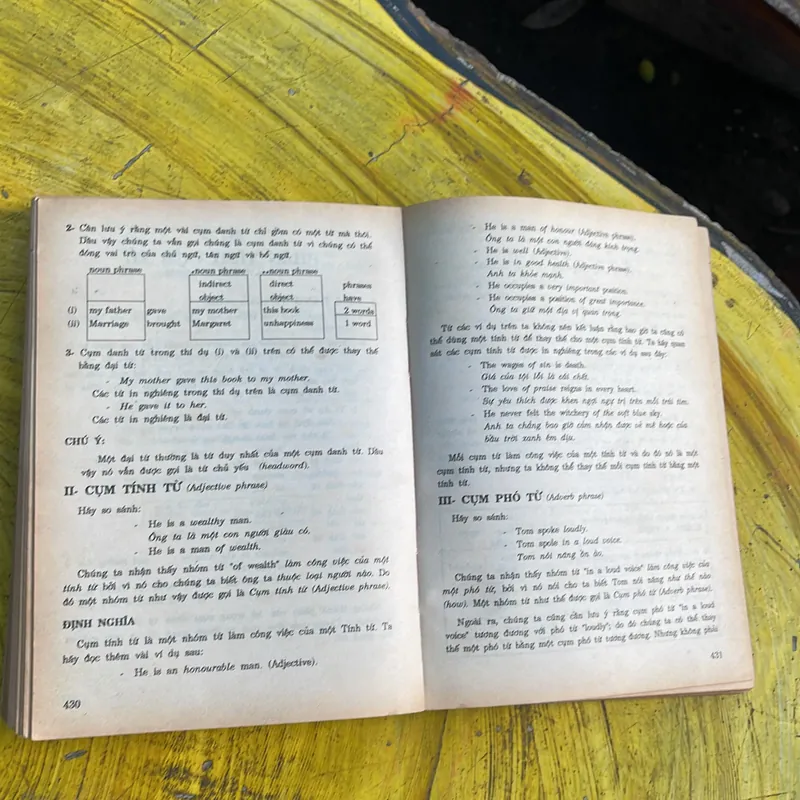 2- Cần lưu ý rằng một vài cụm danh từ chỉ gồm có một từ mà thôi.
Dầu vậy chúng ta vẫn gọi chúng là cụm danh từ vì chúng có thể
đóng vai trò của chủ ngữ, tân ngữ và bổ ngữ.
noun phrase noun phrase noun phrase
indirect direct phrases
object object have
(i) my father gave my mother this book 2 words
(ii) Marriage brought Margaret unhappiness 1 word
3- Cụm danh từ trong thí dụ (i) và (ii) trên có thể được thay thế
bằng đại từ:
- My mother gave this book to my mother.
Các từ in nghiêng trong thí dụ trên là cụm danh từ.
- He gave it to her.
Các từ in nghiêng là đại từ.
CHÚ Ý:
Một đại từ thường là từ duy nhất của một cụm danh từ. Dầu
vậy nó vẫn được gọi là từ chủ yếu (headword).
II- CỤM TÍNH TỪ (Adjective phrase)
Hãy so sánh:
- He is a wealthy man.
Ông ta là một con người giàu có.
- He is a man of wealth.
Chúng ta nhận thấy nhóm từ "of wealth" làm công việc của một
tính từ bởi vì nó cho chúng ta biết ông ta thuộc loại người nào. Do
đó một nhóm từ như vậy được gọi là Cụm tính từ (Adjective phrase).
ĐỊNH NGHĨA
Cụm tính từ là một nhóm từ làm công việc của một Tính từ. Ta
hãy đọc thêm vài ví dụ sau:
- He is an honourable man. (Adjective).
430
- He is a man of honour (Adjective phrase).
Ông ta là một con người đáng kính trọng.
- He is well (Adjective).
- He is in good health (Adjective phrase).
Anh ta khỏe mạnh.
- He occupies a very important position.
- He occupies a position of great importance.
Ông ta giữ một địa vị quan trọng.
Từ các ví dụ trên ta không nên kết luận rằng bao giờ ta cũng có
thể dùng một tính từ để thay thế cho một cụm tính từ. Ta hãy quan
sát các cụm tính từ được in nghiêng trong các ví dụ sau đây:
- The wages of sin is death.
Giá của tội lỗi là cái chết.
- The love of praise reigns in every heart.
Sự yêu thích được khen ngợi ngự trị trên mỗi trái tim.
- He never felt the witchery of the soft blue sky.
Anh ta chẳng bao giờ cảm nhận được vẻ mê hoặc của
bầu trời xanh êm dịu.
Mỗi cụm từ làm công việc của một tính từ và do đó nó là một
cụm tính từ, nhưng ta không thể thay thế mỗi cụm tính từ bằng một
tính từ.
III- CỤM PHÓ TỪ (Adverb phrase)
Hãy so sánh:
- Tom spoke loudly.
- Tom spole in a loud voice.
Tom nói năng ồn ào.
Chúng ta nhận thấy nhóm từ "in a loud voice" làm công việc của
một phó từ, bởi vì nó nói cho ta biết Tom nói năng như thế nào
(how). Một nhóm từ như thế được gọi là Cụm phó từ (Adverb phrase).
Ngoài ra, chúng ta cũng cần lưu ý rằng cụm phó từ "in a loud
voice" tương đương với phó từ "loudly"; do đó chúng ta có thể thay
thế một phó từ bằng một cụm phó từ tương đương. Nhưng không phải
431